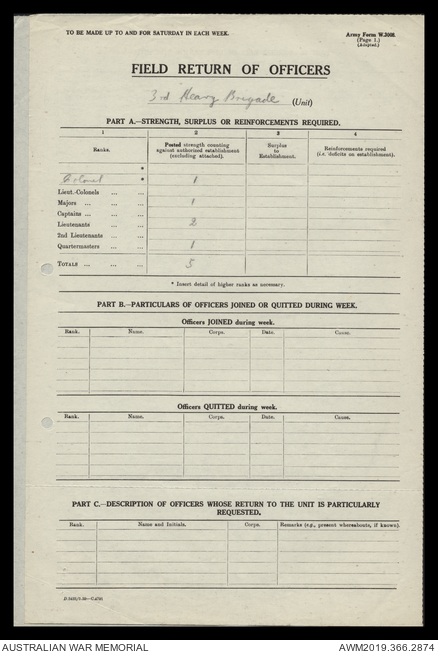 TO BE MADE UP TO AND FOR SATURDAY IN EACH WEEK.
Army Form W.3008.
(Page 1.)
(Adapted.)
FIELD RETURN OF OFFICERS
3rd Heavy Brigade (Unit)
PART A.—STRENGTH, SURPLUS OR REINFORCEMENTS REQUIRED.
1 2 3 4
Ranks. Posted strength counting against authorised establishment (excluding attached). Surplus to Establishment. Reinforcements required (i.e. deficits on establishment).
*
Colonel * 1
Lieut.-Colonels ... ...
Majors ... ... ... 1
Captains ... ... ...
Lieutenants ... ... 2
2nd Lieutenants ... ...
Quartermasters ... ... 1
TOTALS ... ... ... 5
* Insert detail of higher ranks as necessary.
PART B.—PARTICULARS OF OFFICERS JOINED OR QUITTED DURING WEEK.
Officers JOINED during week.
Rank. Name. Corps. Date. Cause.
Officers QUITTED during week.
Rank. Name. Corps. Date. Cause.
PART C.—DESCRIPTION OF OFFICERS WHOSE RETURN TO THE UNIT IS PARTICULARLY
REQUESTED.
Rank. Name and Initials. Corps. Remarks (e.g., present whereabouts, if known).
AUSTRALIAN WAR MEMORIAL
AWM2019.366.2874